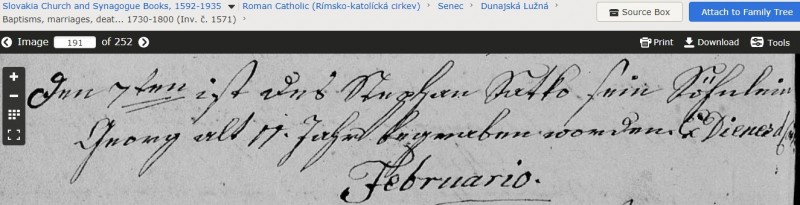 Slovakia Church and Synagogue Books, 1592-1935 Roman Catholic (Rímsko-katolícká cirkev) Senec Dunajská Lužná
Baptisms, marriages, deat... 1730-1800 (Inv. č. 1571)
Source Box
Attach to Family Tree
Image 191 of 252
Print Download Tools
Den 7ten ist des Stephan Satko sein Söhnlein
Georg alt 17. Jahr begraben worden.
Februario.